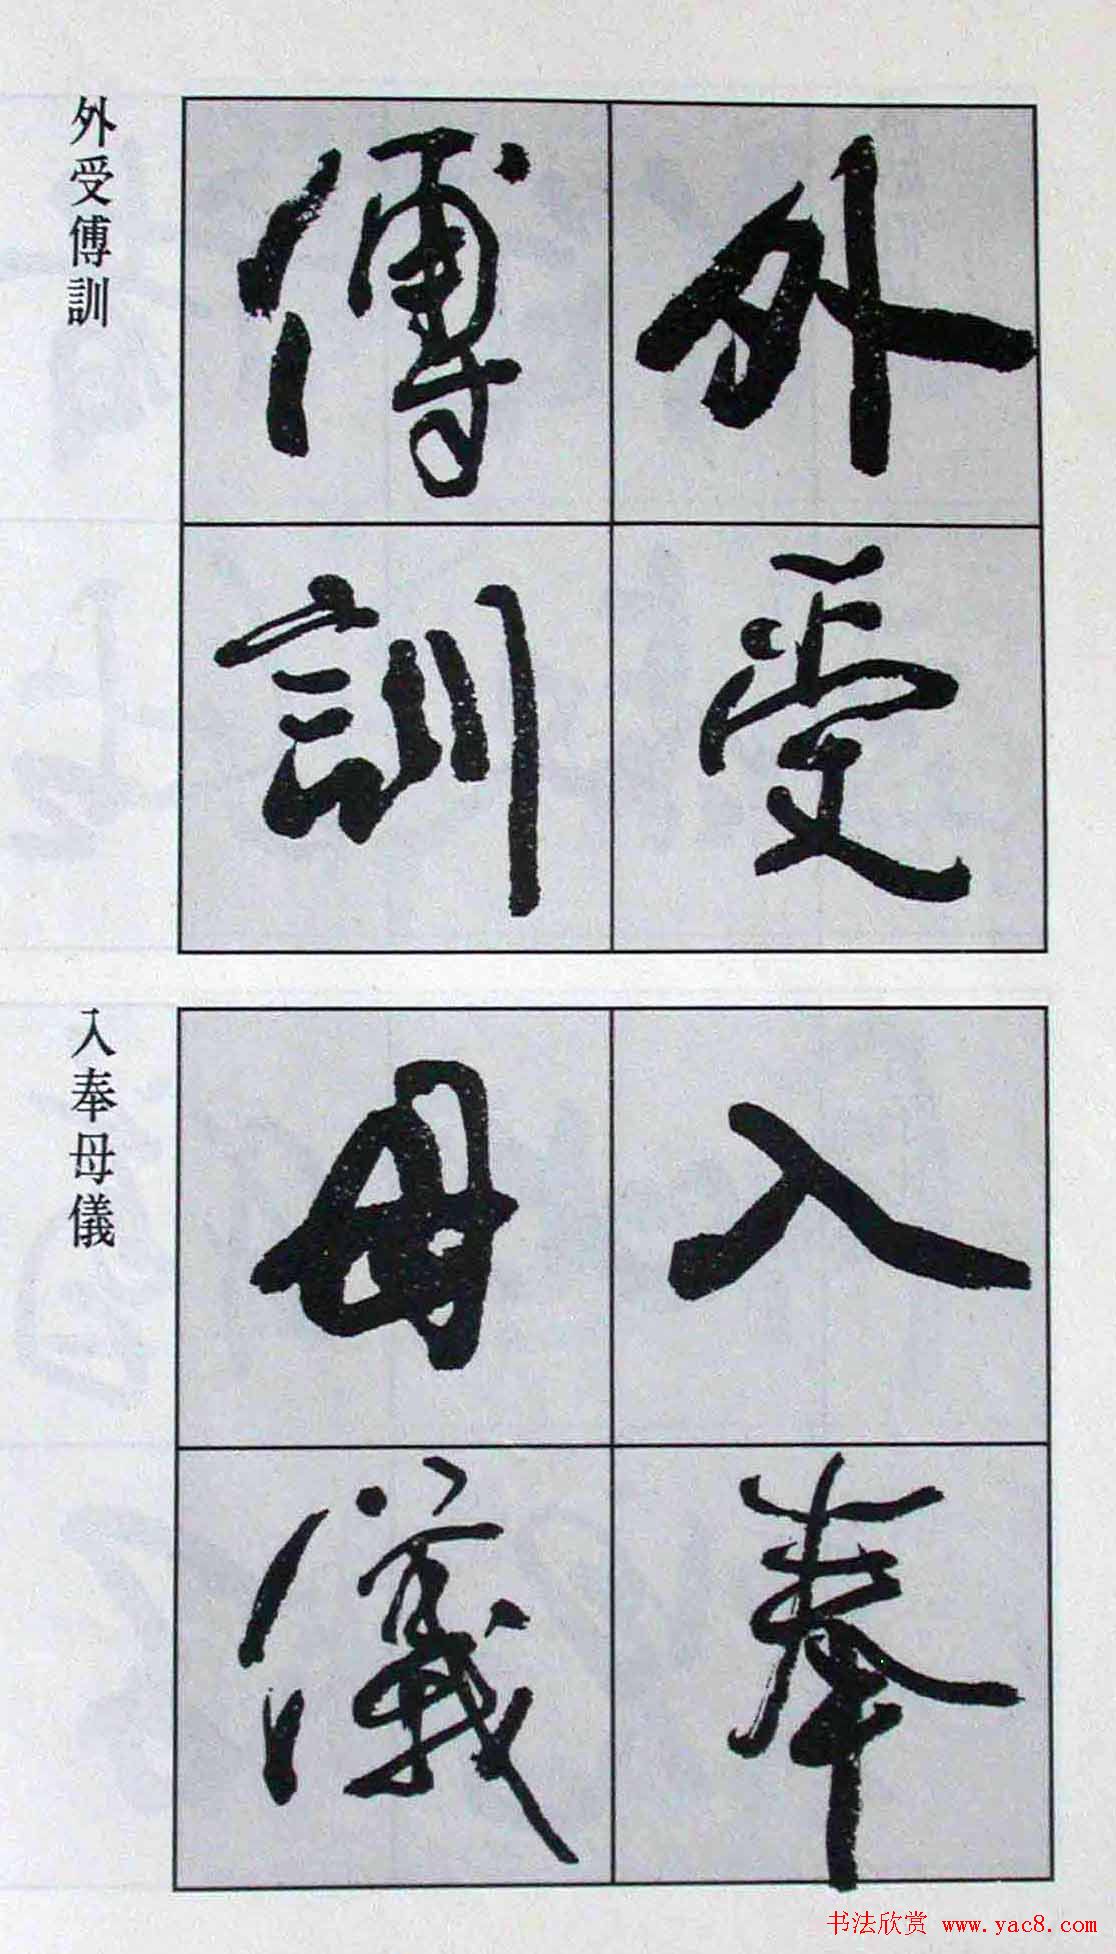 外受
傅訓
外受傅訓
入奉
母儀
入奉母儀
书法欣赏 www.yac8.com